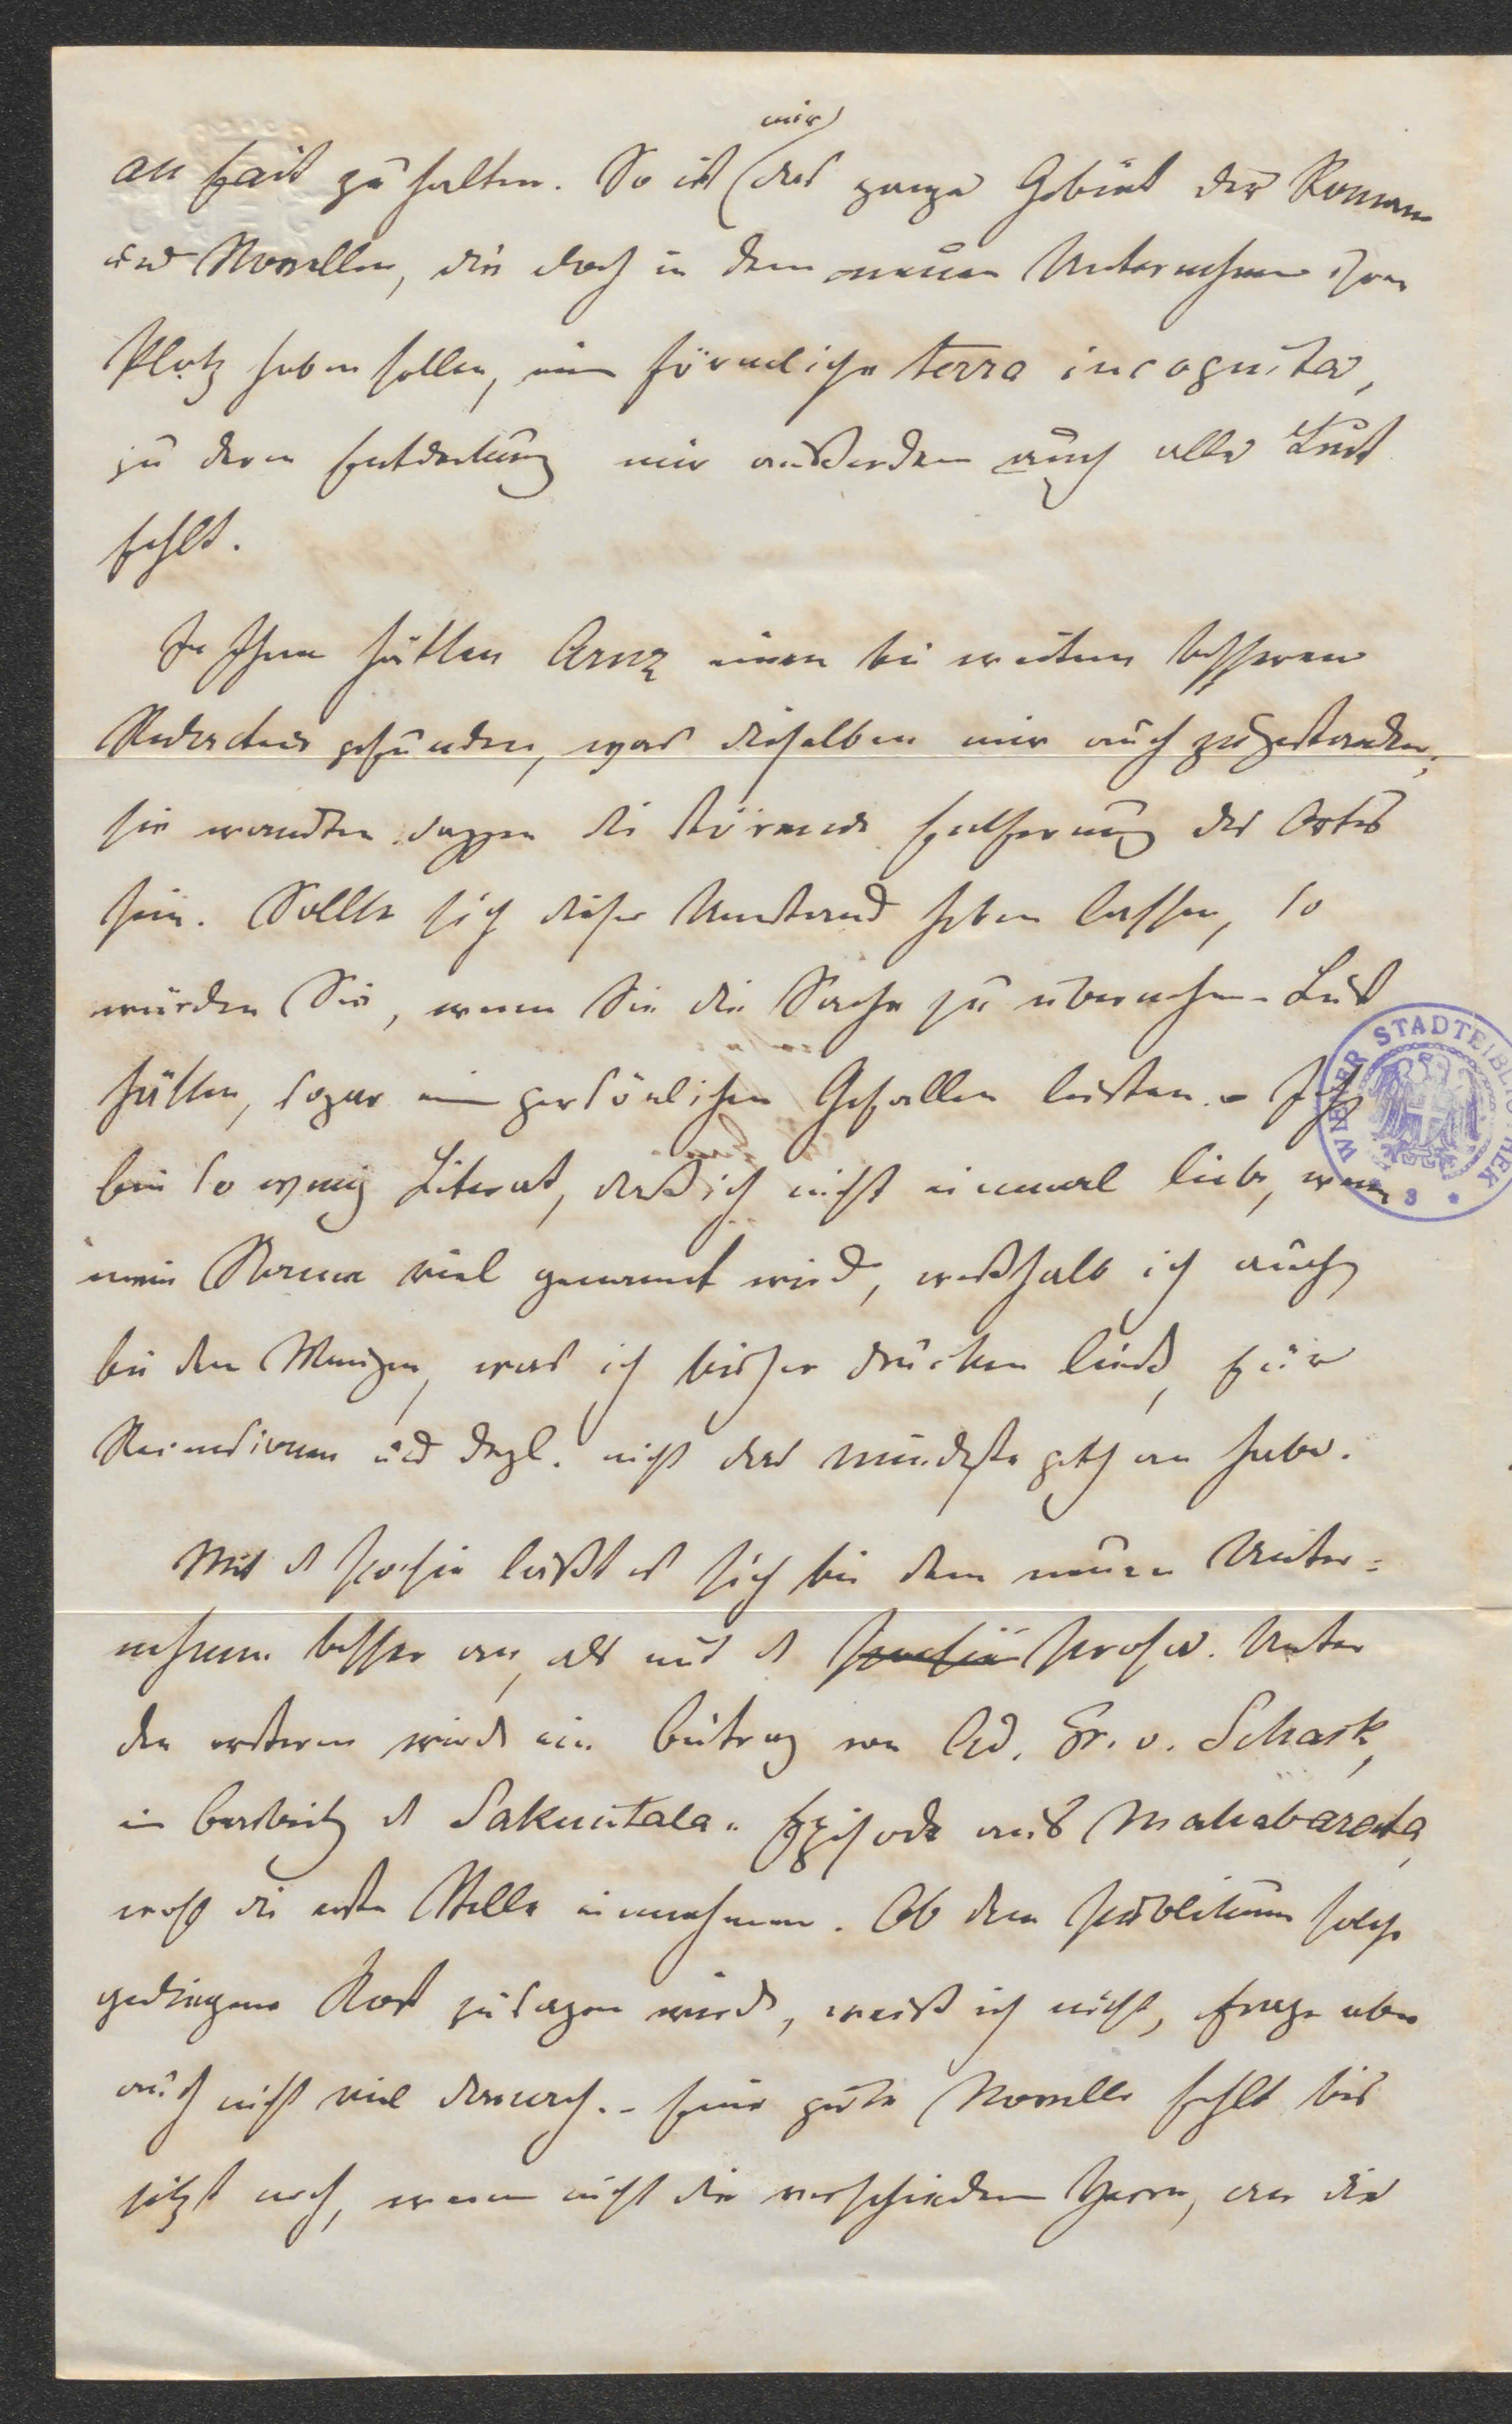 mir
au fait zu halten. So ist das ganze Gebiet der Romane
und Novellen, die doch in dem neuen Unternehmen ihren
Platz haben sollen, eine förmliche terra incognita,
zu deren Entdeckung mir außerdem auch alle Lust
fehlt.
In Ihnen hätten Arnz einen bei weitem besseren
Redacteur gefunden, was dieselben mir auch zugestanden;
sie wandten dagegen die störende Entfernung des Ortes
ein. Sollte sich dieser Umstand heben lassen, so
würden Sie, wenn Sie die Sache zu übernehmen Lust
hätten, sogar einen persönlichen Gefallen leisten. – Ich
bin so wenig Literat, daß ich nicht einmal liebe, wenn
mein Name viel genannt wird, weßhalb ich auch
bei dem Wenigen, was ich bisher drucken ließ, für
Recensionen und dergl. nicht das mindeste gethan habe.
Mit d Poesie läßt es sich bei dem neuen Unter=
nehmen besser an, als mit d Poesie Prosa. Unter
den ersteren wird ein Beitrag von Ad. Fr. v. Schack,
ein Bearbeitg d Sakuntala-Episode aus Mahabarata,
wohl die erste Stelle einnehmen. Ob dem Publikum solche
gediegene Kost zusagen wird, weiß ich nicht, frage aber
auch nicht viel darnach. – Eine gute Novelle fehlt bis
jetzt noch, wenn nicht die verschiedenen Herrn, an die
WIENER STADTBIBLIOTHEK